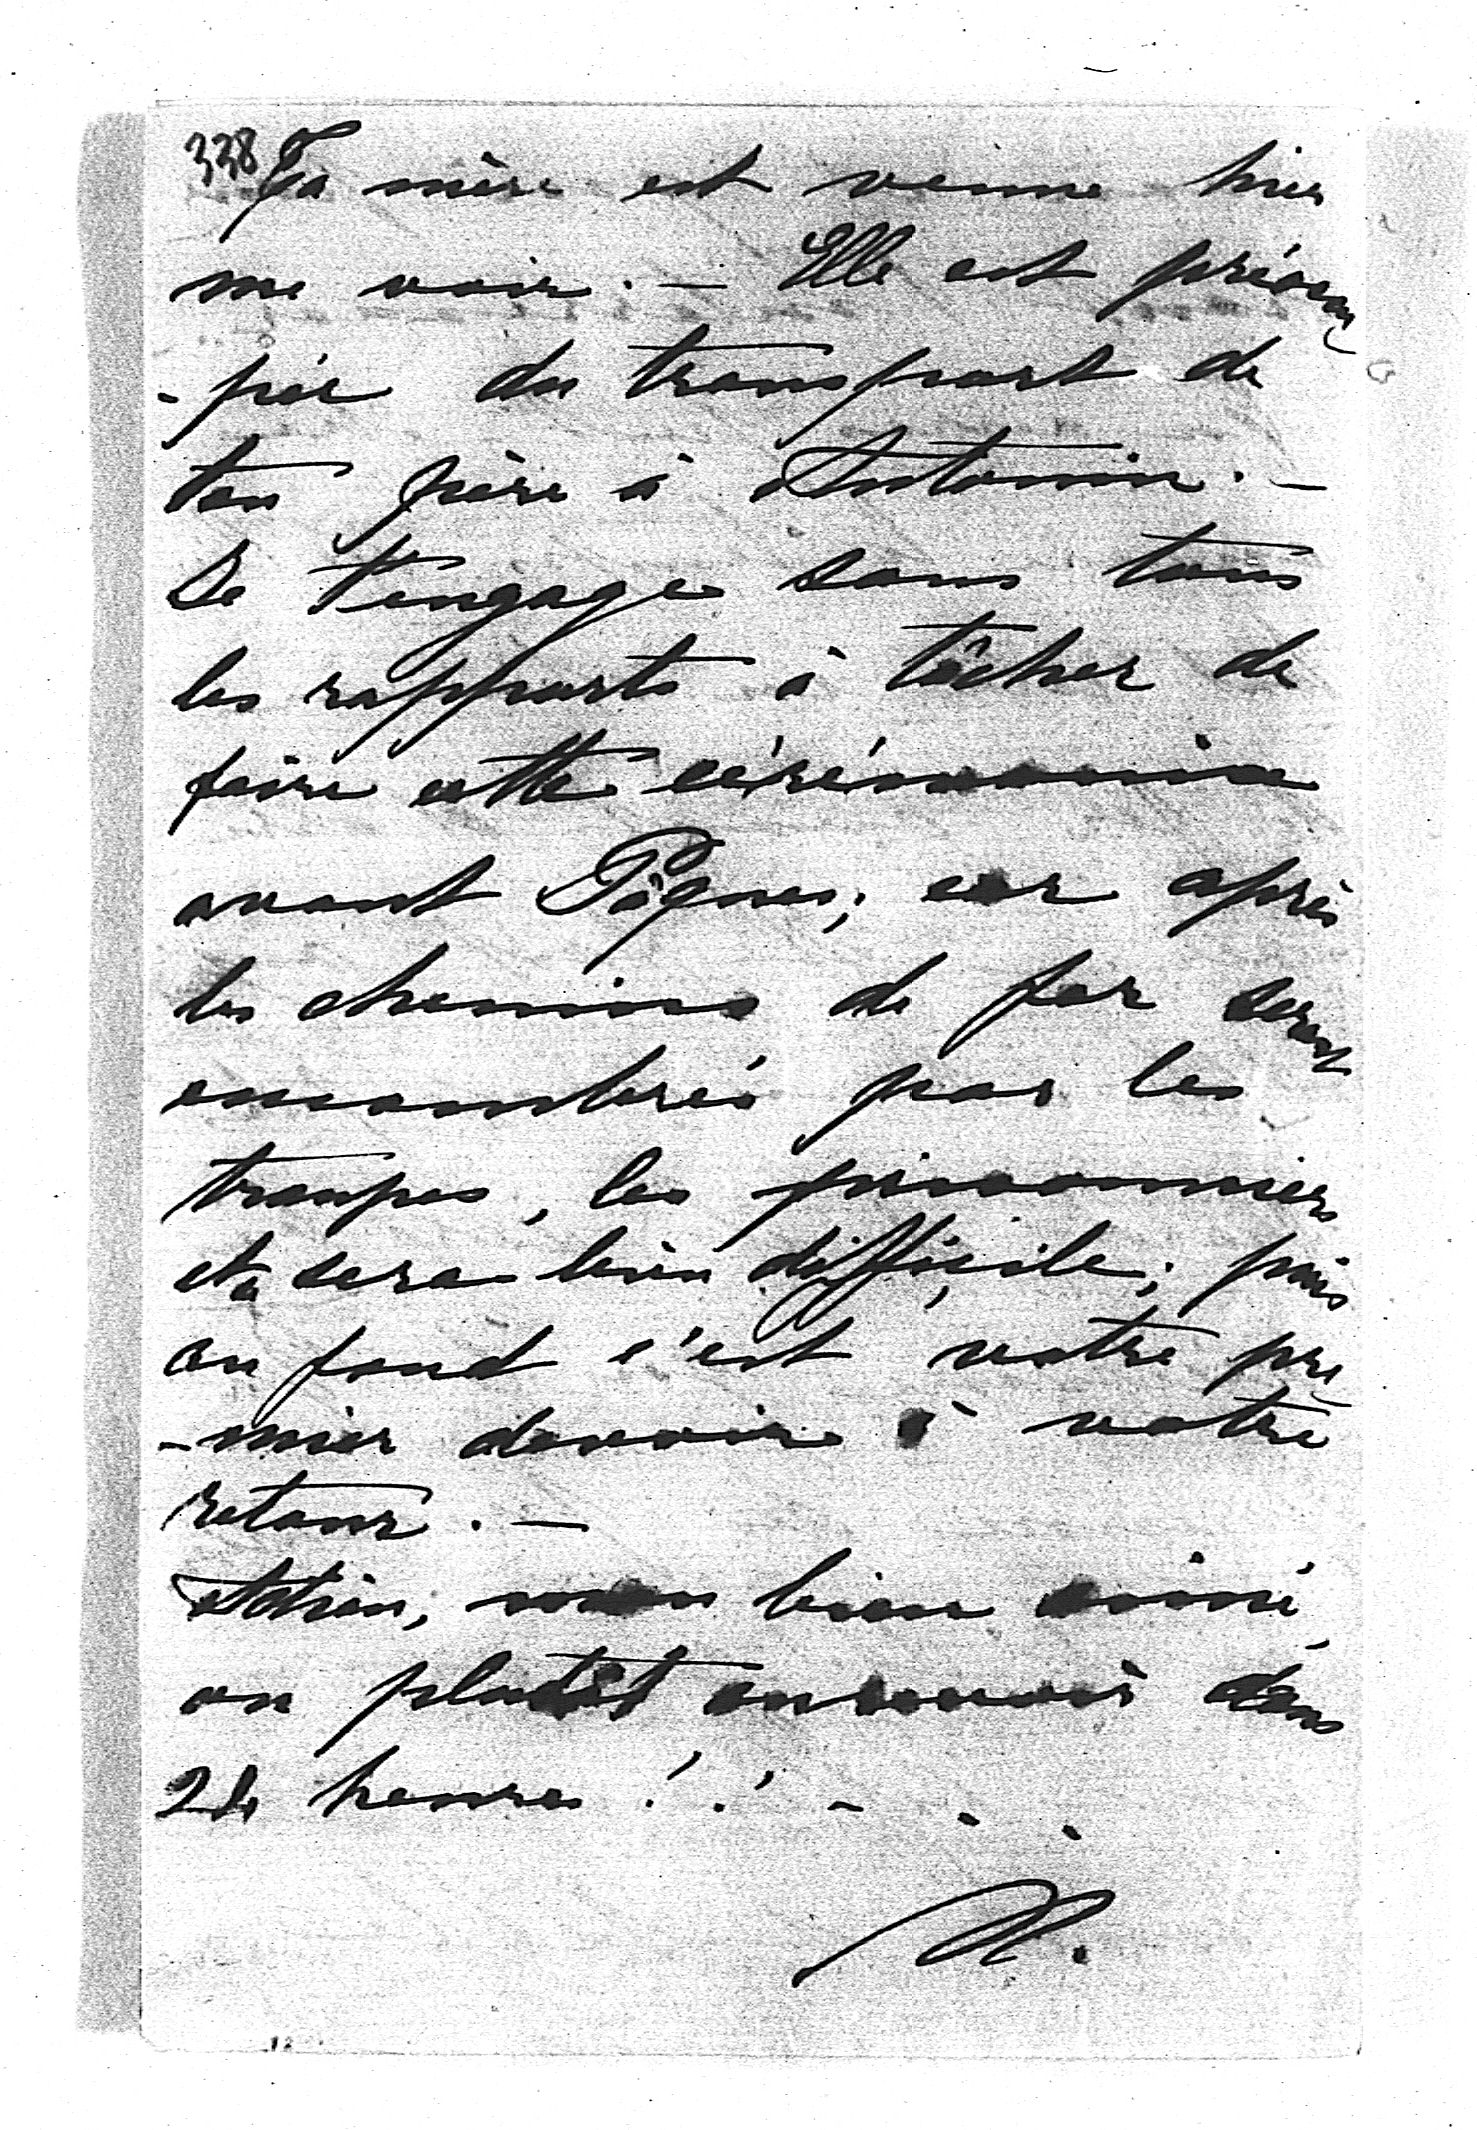 338 Ta mère est venue hier
me voir. — Elle est préoccu
-pée du transport de
ton père à Antonin. —
Je t'engage sous tous
les rapports à tâcher de
faire cette cérémonie
avant Pâques; car après
les chemins de fer seront
encombrés par les
troupes, les prisonniers
et ce sera bien difficile; puis
au fond c'est votre pre
-mier devoir à votre
retour. —
Adieu, mon bien aimé,
ou plutôt au revoir dans
heures !! -